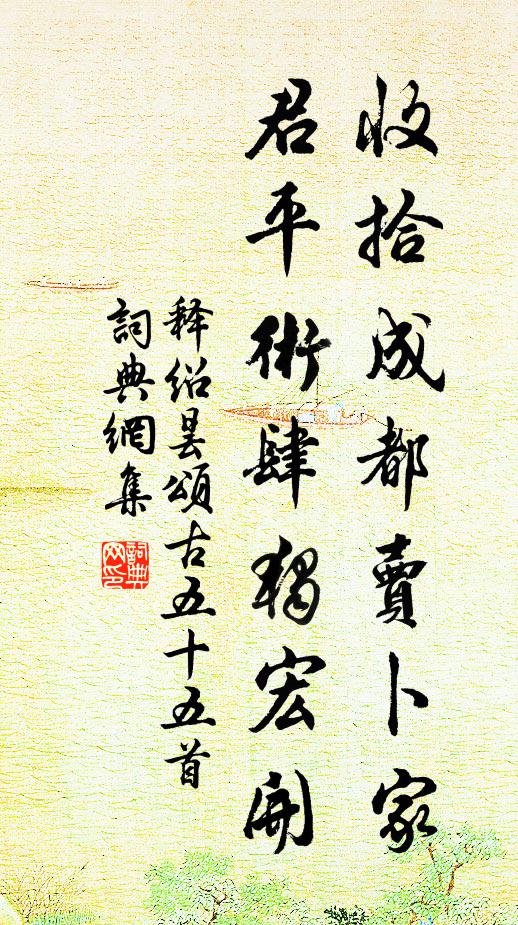 收拾成都賣卜家
君平術肆独宏開
释绍昙頌古五十五首
詞典網集
詞典网印